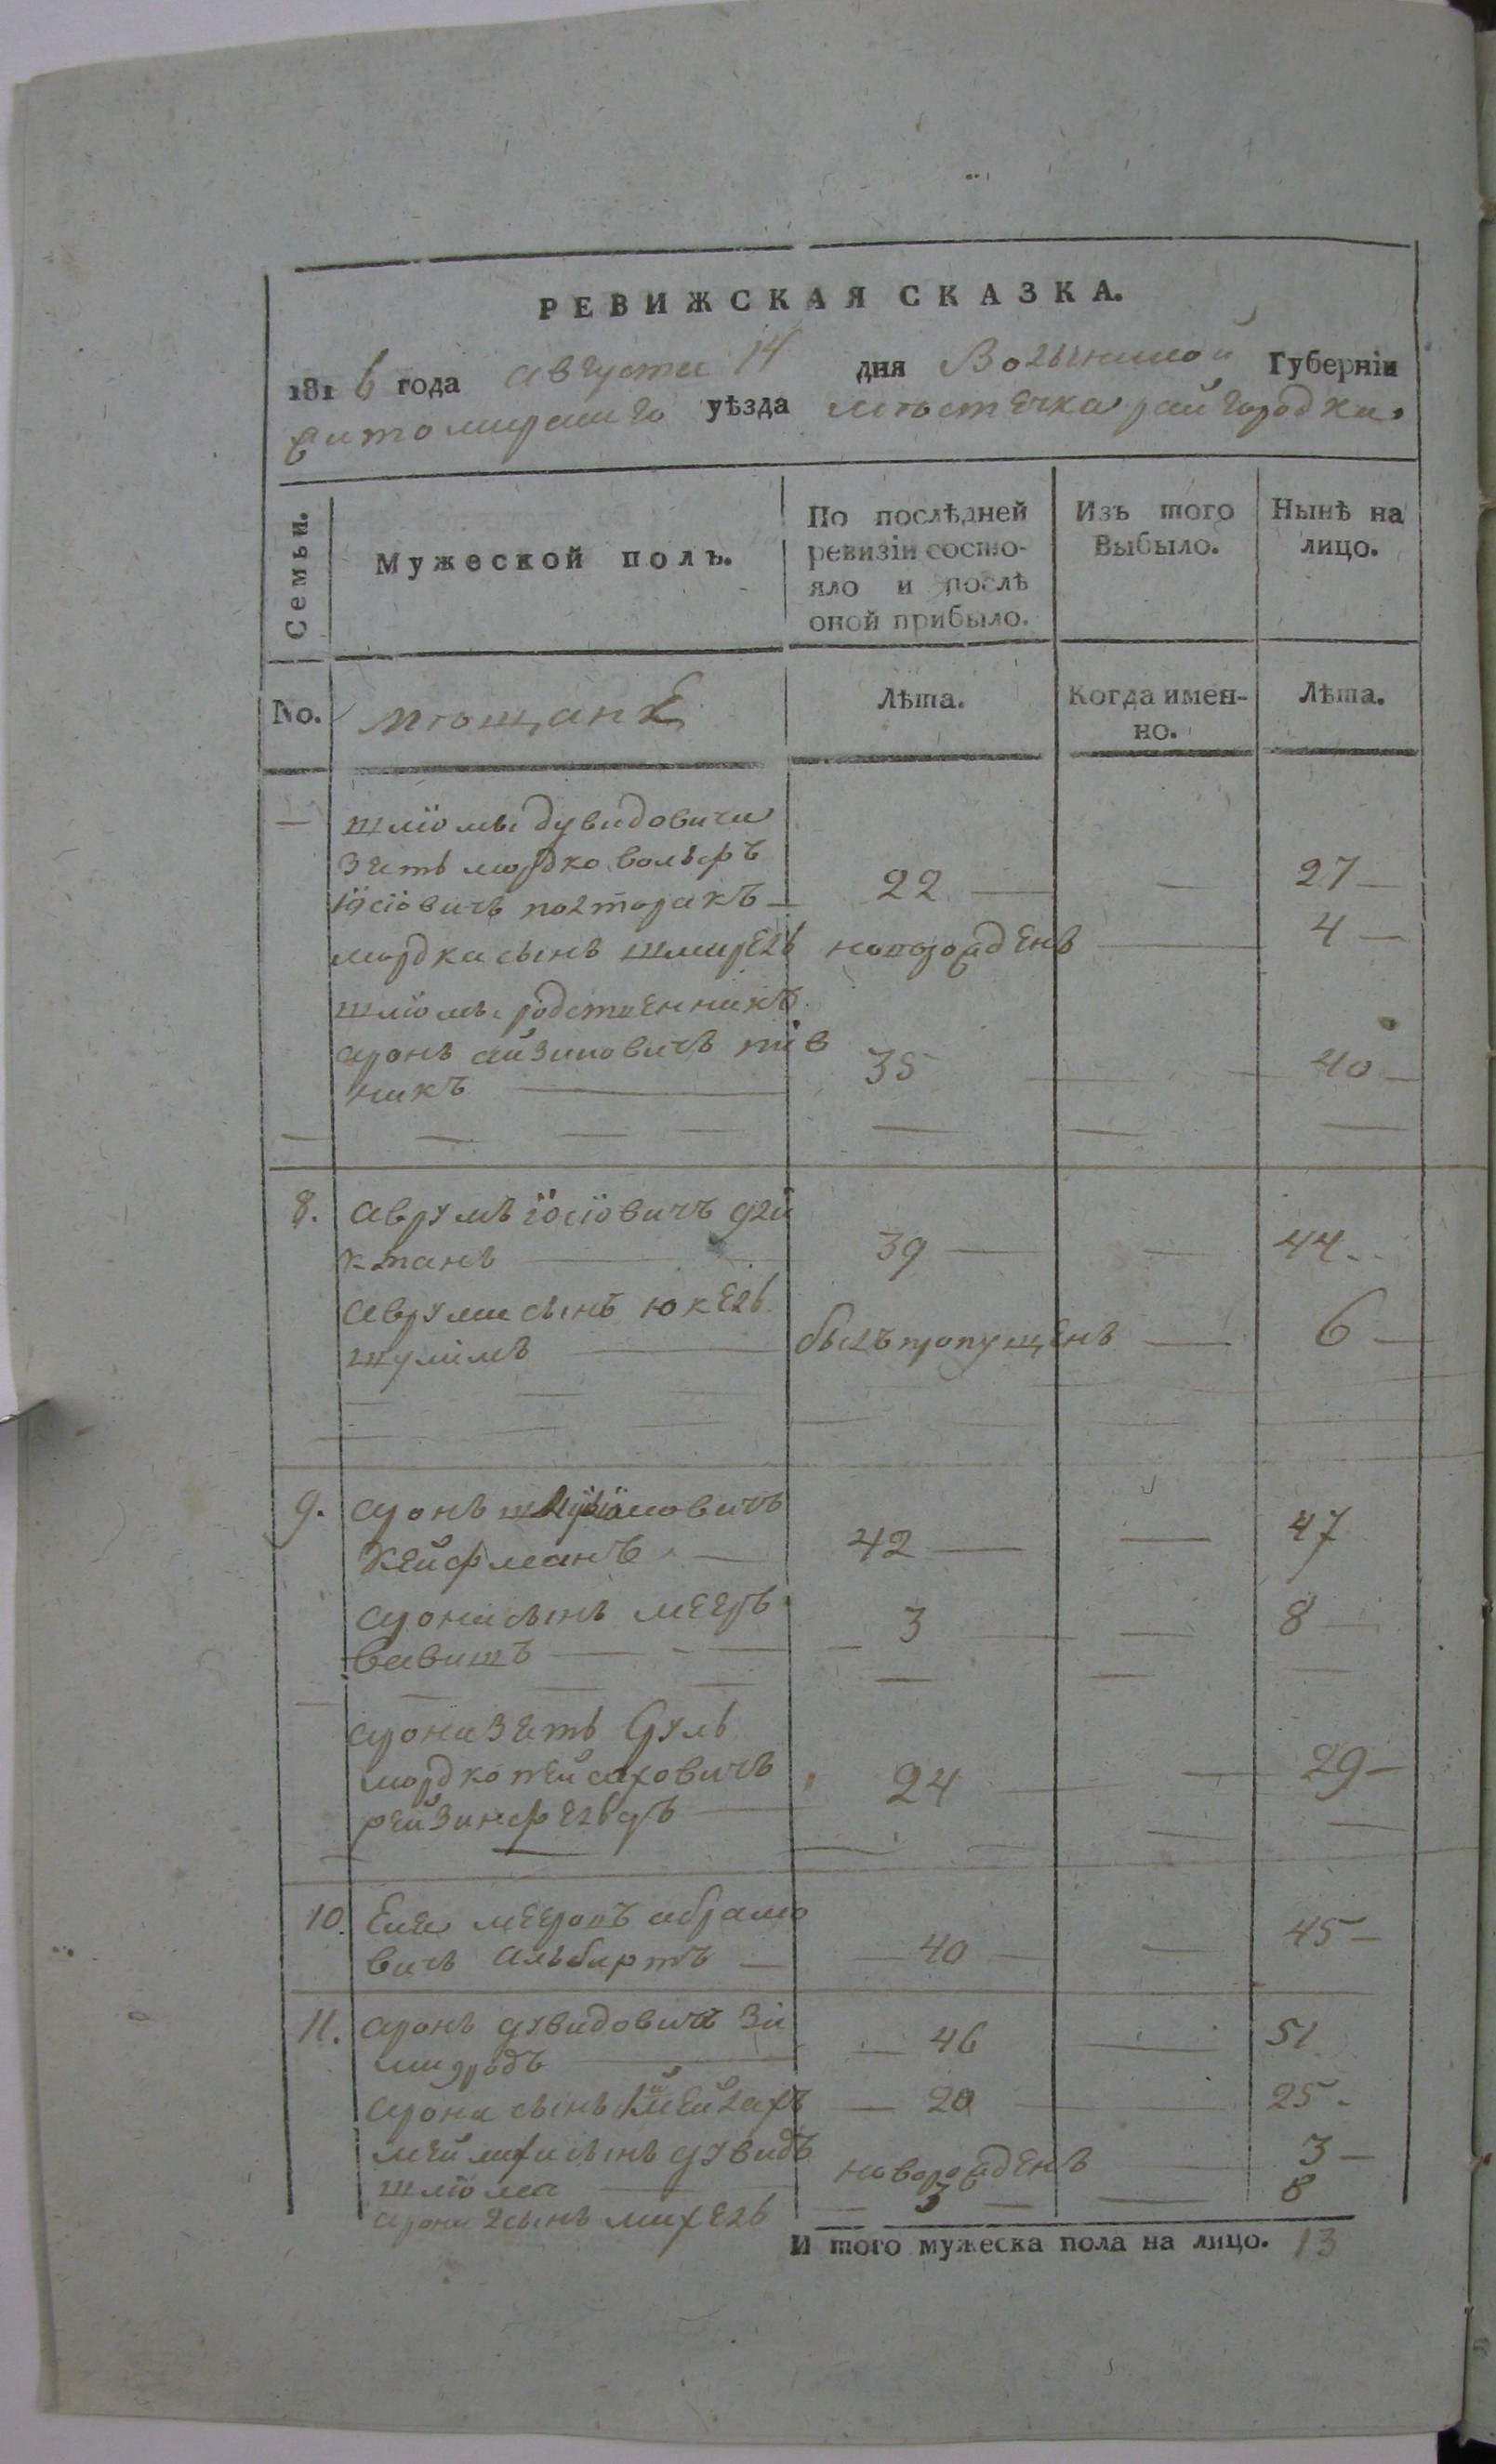 РЕВИЖСКАЯ СКАЗКА.
1816 года августа 14 дня Волынской Губернїи
житомирскаго уѣзда мѣстечка райгородка.
Семьи.
Мужеской полъ.
По послѣдней ревизїи состояло и послѣ оной прибыло.
Изъ того Выбыло.
Нынѣ на лицо.
No. мѣщанЕ
Лѣта.
Когда именно.
Лѣта.
— шлїомы дувидовича
зять мордко вольфъ
їосїовичъ полторакъ — 22 — — 27 —
мордка сынъ шмирель новорожденъ — 4 —
шлїомы родственникъ
аронъ айзиковичъ пїв
никъ — 35 — 40 —
8. аврумъ їосїовичъ
ктанъ — 39 — — 44
аврума сынъ юкель
шулїмъ — былъ пропущенъ — 6 —
9. аронъ
Кейфманъ — 42 — — 47
арона сынъ мееръ
вавишъ — 3 — — 8 —
арона зять Сруль
мордко пейсаховичъ
рейзинфельдъ — 24 — — 29 —
10. мееровъ абрамо
вичъ альбиртъ — 40 — — 45 —
11. аронъ дувидовичъ Зи
— 46 — 51
арона сынъ — 20 — 25
сынъ дувидъ
шлїома — новорожденъ — 3 —
арона 2 сынъ михель — 3 — — 8
И того мужеска пола на лицо. 13